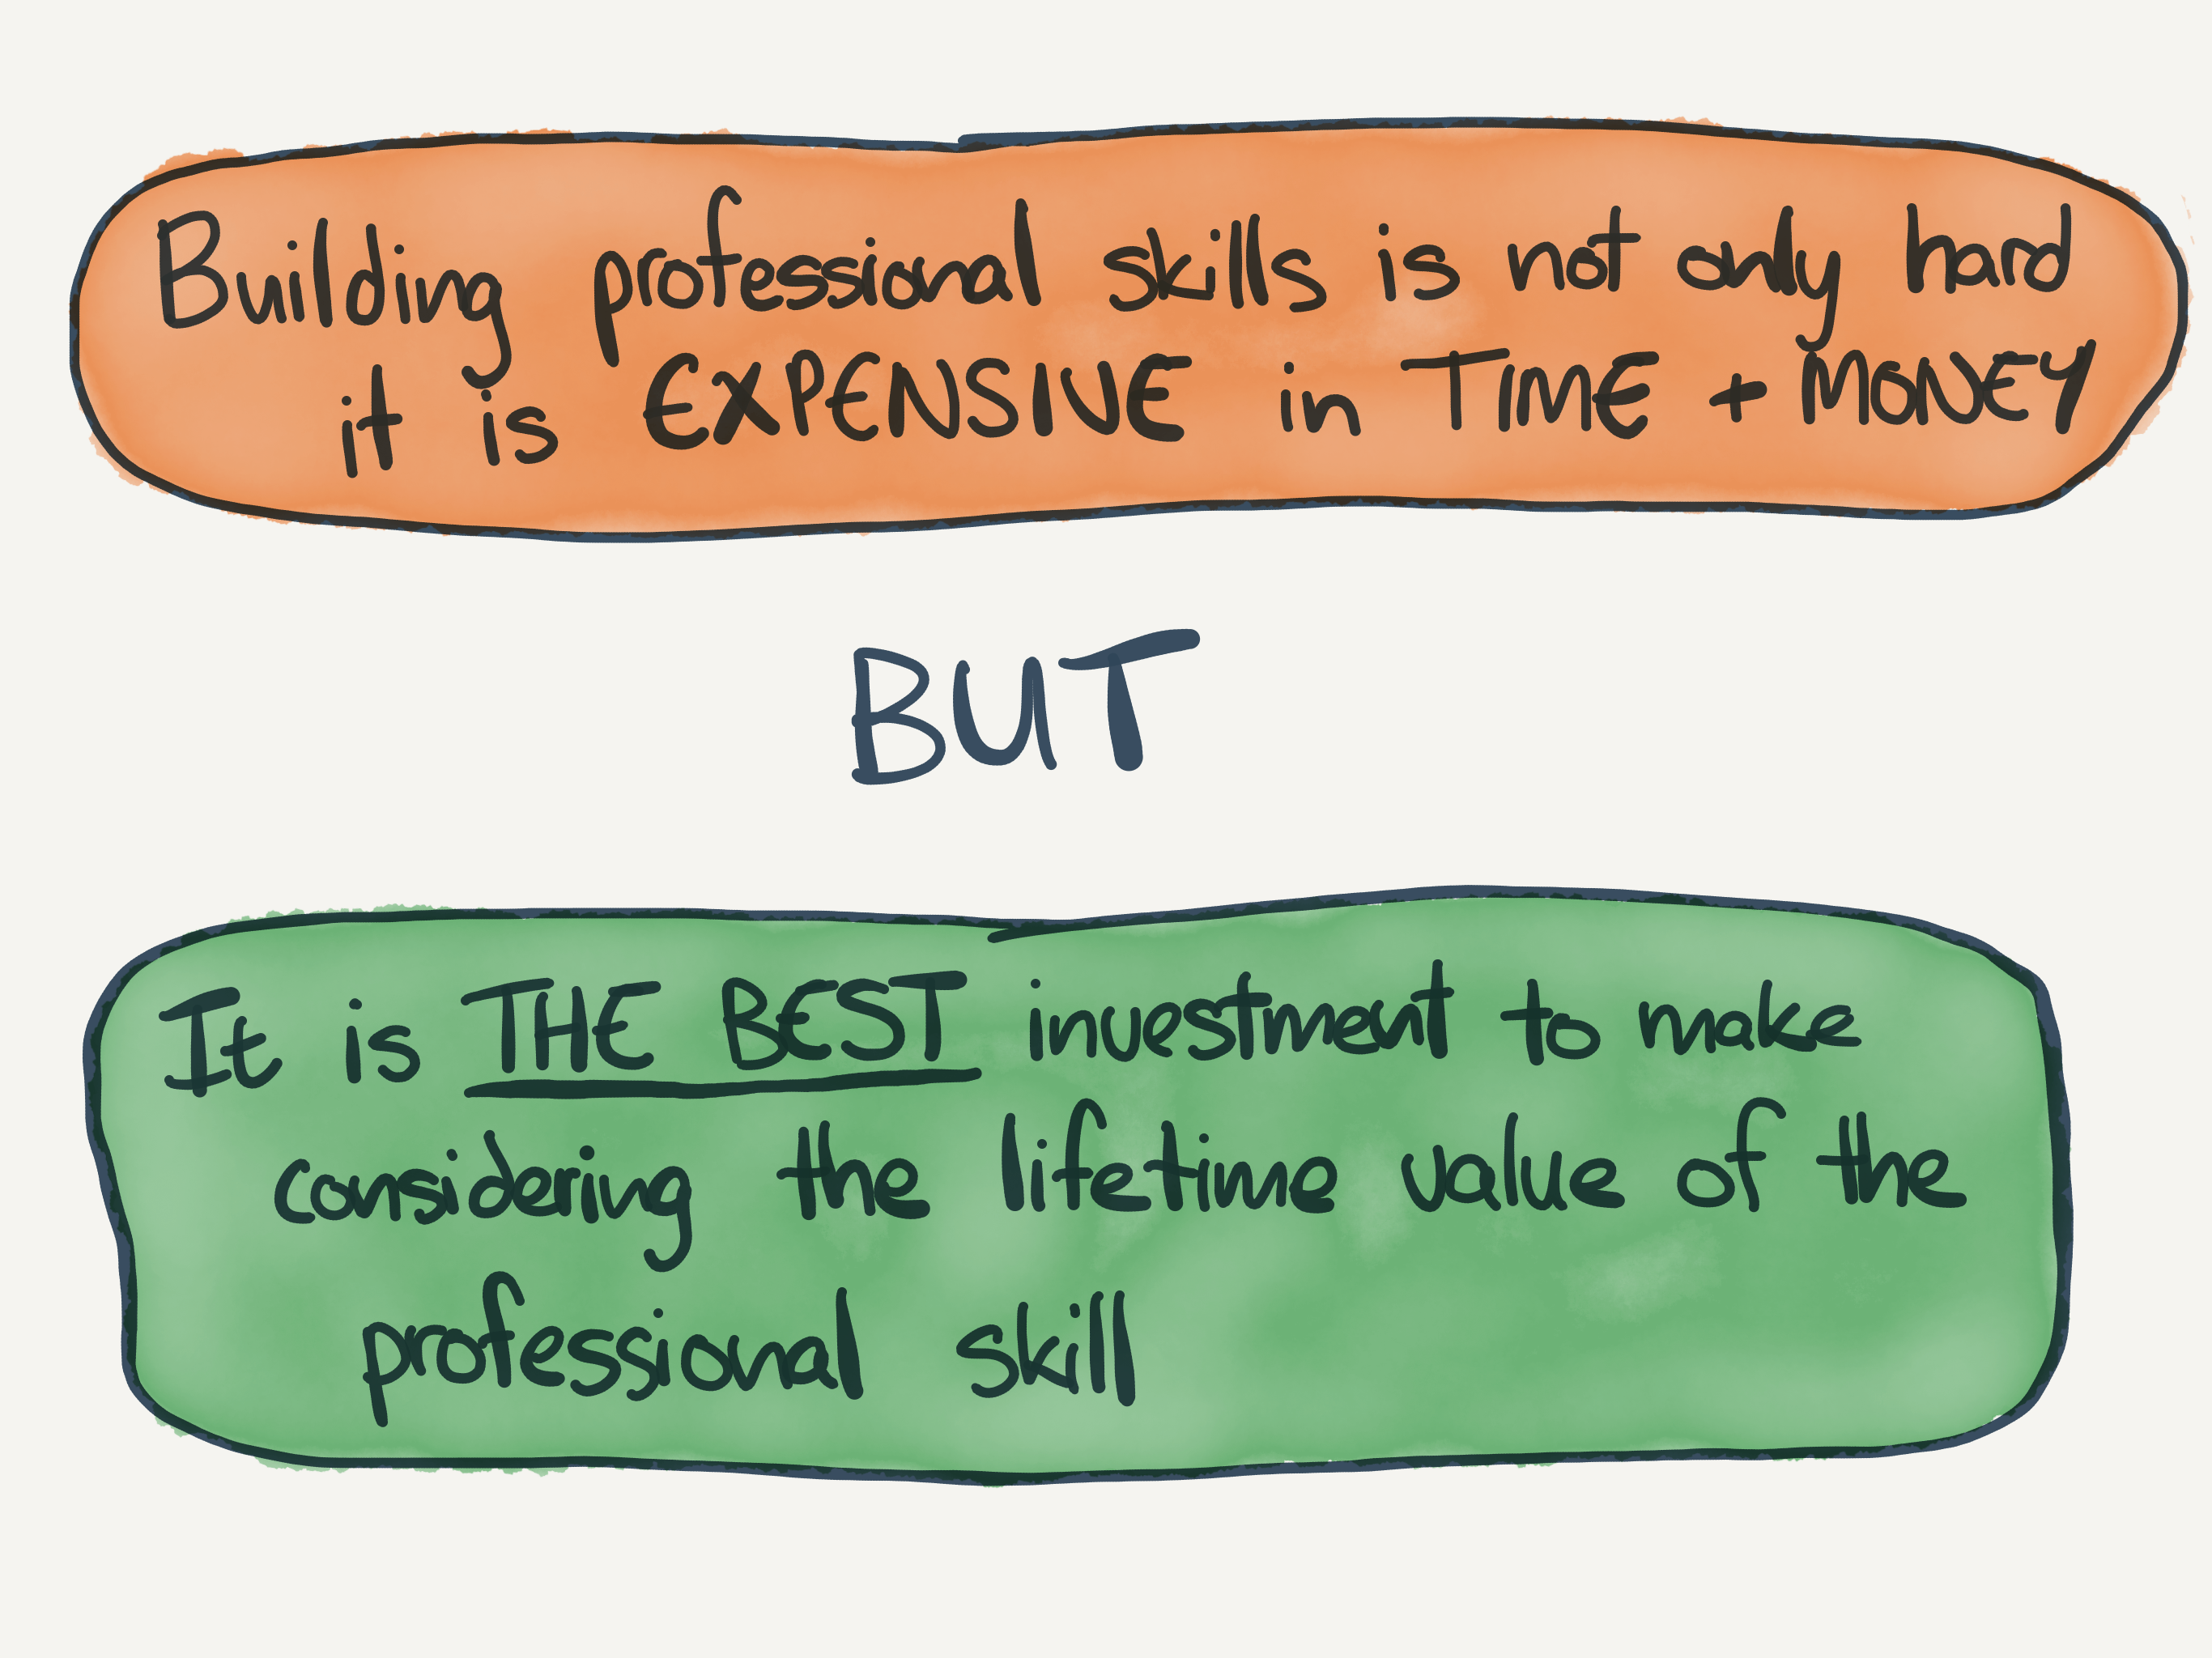 Building professional skills is not only hard
it is EXPENSIVE in TIME + MONEY
BUT
It is THE BEST investment to make
considering the lifetime value of the
professional skill